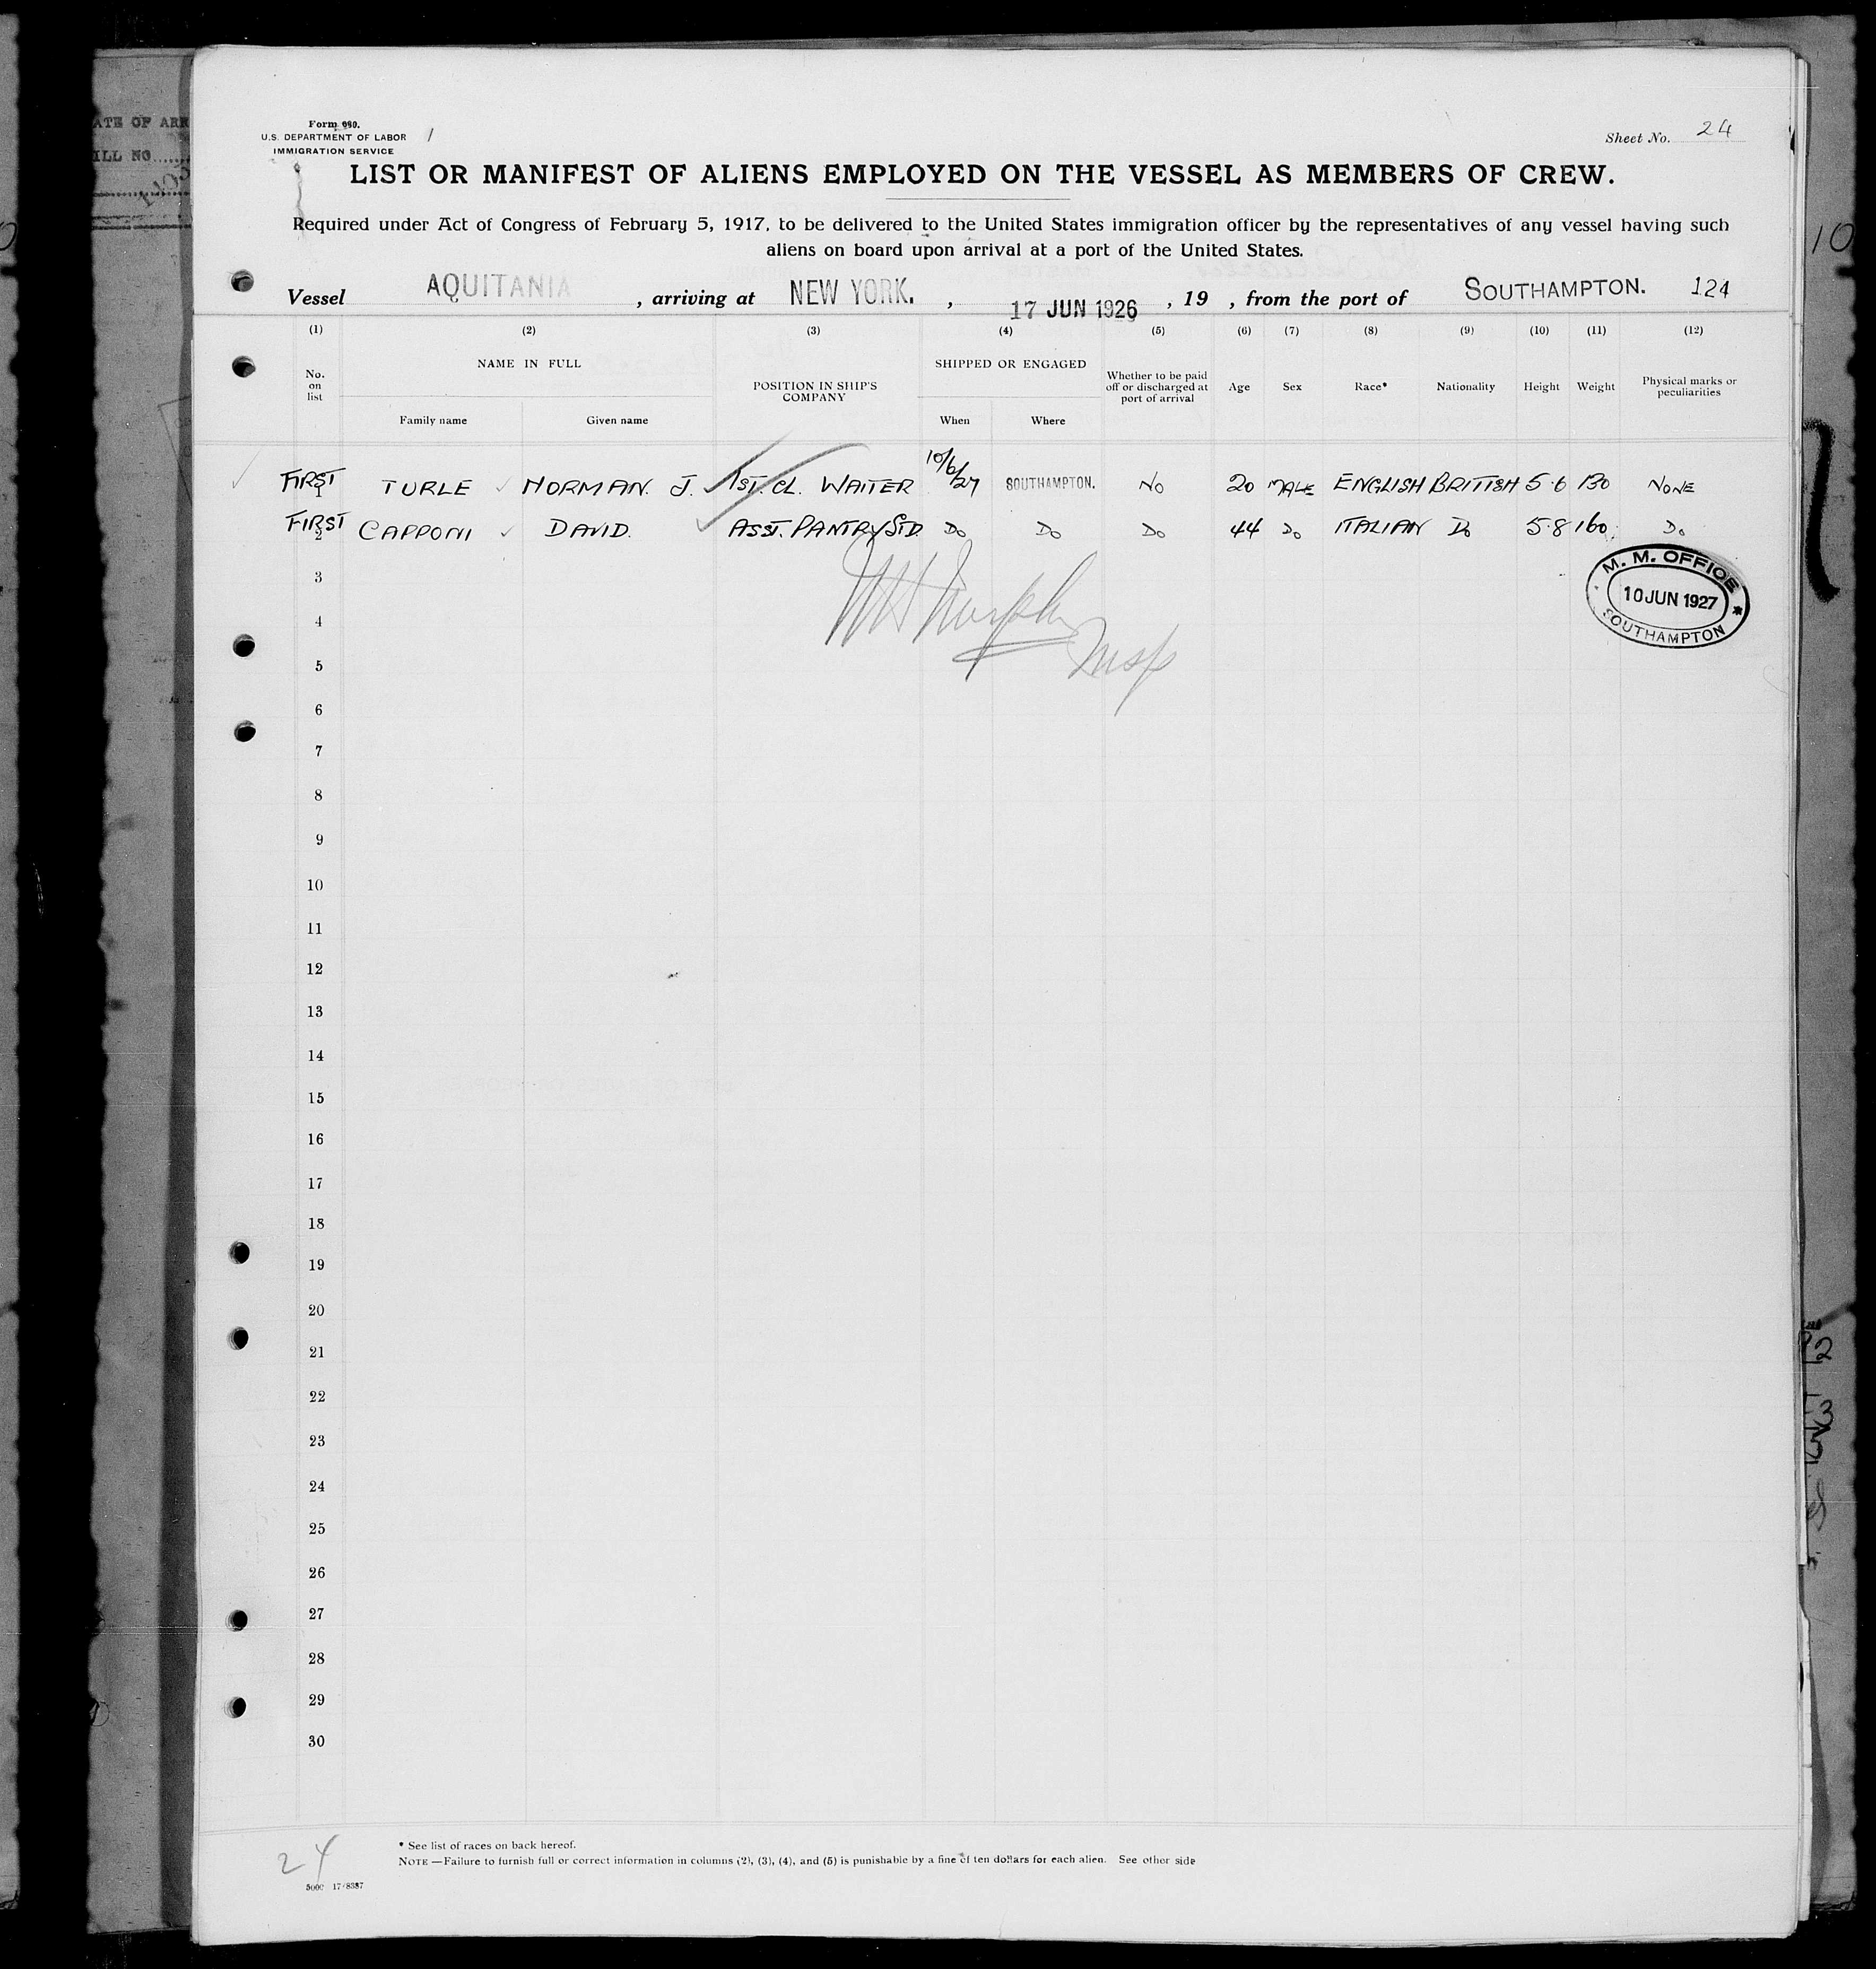 ATE OF ARR
ILL NO
Form 680.
U.S. DEPARTMENT OF LABOR
IMMIGRATION SERVICE
Sheet No. 24
LIST OR MANIFEST OF ALIENS EMPLOYED ON THE VESSEL AS MEMBERS OF CREW.
Required under Act of Congress of February 5, 1917, to be delivered to the United States immigration officer by the representatives of any vessel having such
aliens on board upon arrival at a port of the United States.
10
Vessel AQUITANIA, arriving at NEW YORK., 17 JUN 1926, 19 , from the port of SOUTHAMPTON. 124
(1) (2) (3) (4) (5) (6) (7) (8) (9) (10) (11) (12)
No. on list NAME IN FULL POSITION IN SHIP'S COMPANY SHIPPED OR ENGAGED Whether to be paid off or discharged at port of arrival Age Sex Race* Nationality Height Weight Physical marks or peculiarities
Family name Given name When Where
FIRST 1 TURLE NORMAN. J. 1ST. CL. WAITER 10/6/27 SOUTHAMPTON. NO 20 MALE ENGLISH BRITISH 5·6 130 NONE
FIRST 2 CAPPONI DAVID. ASST. PANTRY STD. DO DO DO 44 DO ITALIAN DO 5·8 160 DO
M. M. OFFICE
10 JUN 1927
SOUTHAMPTON
Murphy
Insp
3
4
5
6
7
8
9
10
11
12
13
14
15
16
17
18
19
20
21
22
23
24
25
26
27
28
29
30
* See list of races on back hereof.
NOTE—Failure to furnish full or correct information in columns (2), (3), (4), and (5) is punishable by a fine of ten dollars for each alien. See other side
24